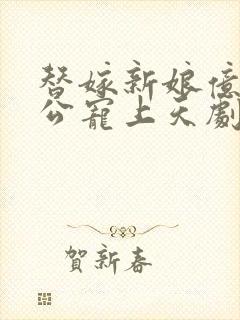 替嫁新娘億
公寵上天劇
賀新春